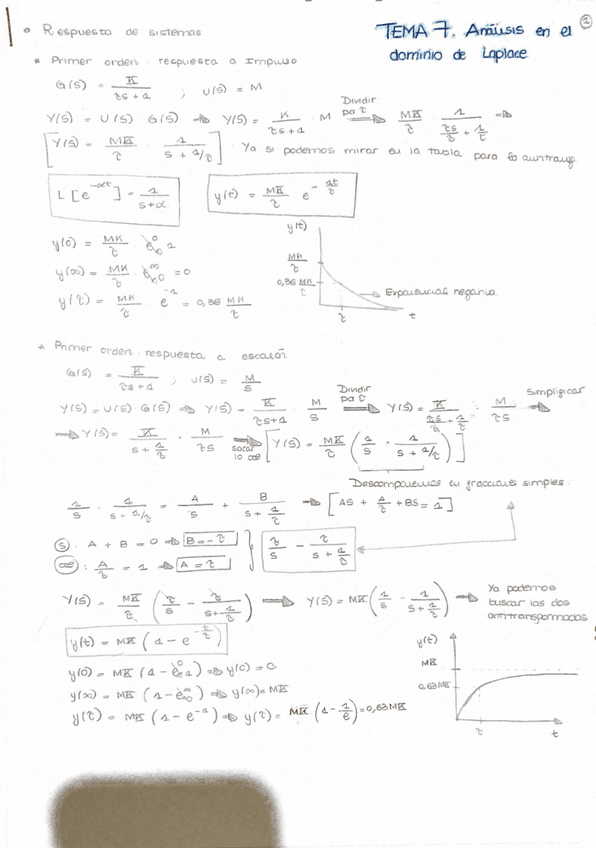 TEMA 7. Análisis en el 1
dominio de Laplace
• Respuesta de sistemas
* Primer orden respuesta a Impulso
G(s) = K / (τs + 1) ; U(s) = M
Y(s) = U(s) G(s) ⇒ Y(s) = K / (τs + 1) · M Dividir por τ ⇒ MK/τ · 1 / (τs/τ + 1/τ) ⇒
[Y(s) = MK/τ · 1 / (s + 1/τ)] . Ya si podemos mirar en la tabla para la antitransf
L[e^-αt] = 1 / (s + α) y(t) = MK/τ e^-1t/τ
y(0) = MK/τ · e^0 1
y(∞) = MK/τ · e^∞ 0 = 0
y(τ) = MK/τ · e^-1 = 0,36 MK/τ
y(t)
MK/τ
0,36 MK/τ
→ Exponencial negativa
τ t
* Primer orden respuesta a escalón
G(s) = K / (τs + 1) ; U(s) = M/s
Y(s) = U(s) · G(s) ⇒ Y(s) = K / (τs + 1) · M/s Dividir por τ ⇒ Y(s) = K / (τs/τ + 1/τ) · M/τs Simplificar ⇒
⇒ Y(s) = K / (s + 1/τ) · M/τs sacar ⇒ [Y(s) = MK/τ (1/s · 1 / (s + 1/τ))]
Descomponemos en fracciones simples
1/s · 1 / (s + 1/τ) = A/s + B / (s + 1/τ) ⇒ [AS + A/τ + BS = 1]
(s) : A + B = 0 ⇒ B = -τ
: A/τ = 1 ⇒ A = τ
τ/s - τ / (s + 1/τ)
Y(s) = MK/τ (τ/s - τ / (s + 1/τ)) ⇒ Y(s) = MK (1/s - 1 / (s + 1/τ)) ⇒ Ya podemos
buscar las dos
antitransformadas
y(t) = MK (1 - e^-t/τ)
y(0) = MK (1 - e^0 1) ⇒ y(0) = 0
y(∞) = MK (1 - e^∞ 0) ⇒ y(∞) = MK
y(τ) = MK (1 - e^-1) ⇒ y(τ) = MK (1 - 1/e) = 0,63 MK
y(t)
MK
0,63 MK
τ t